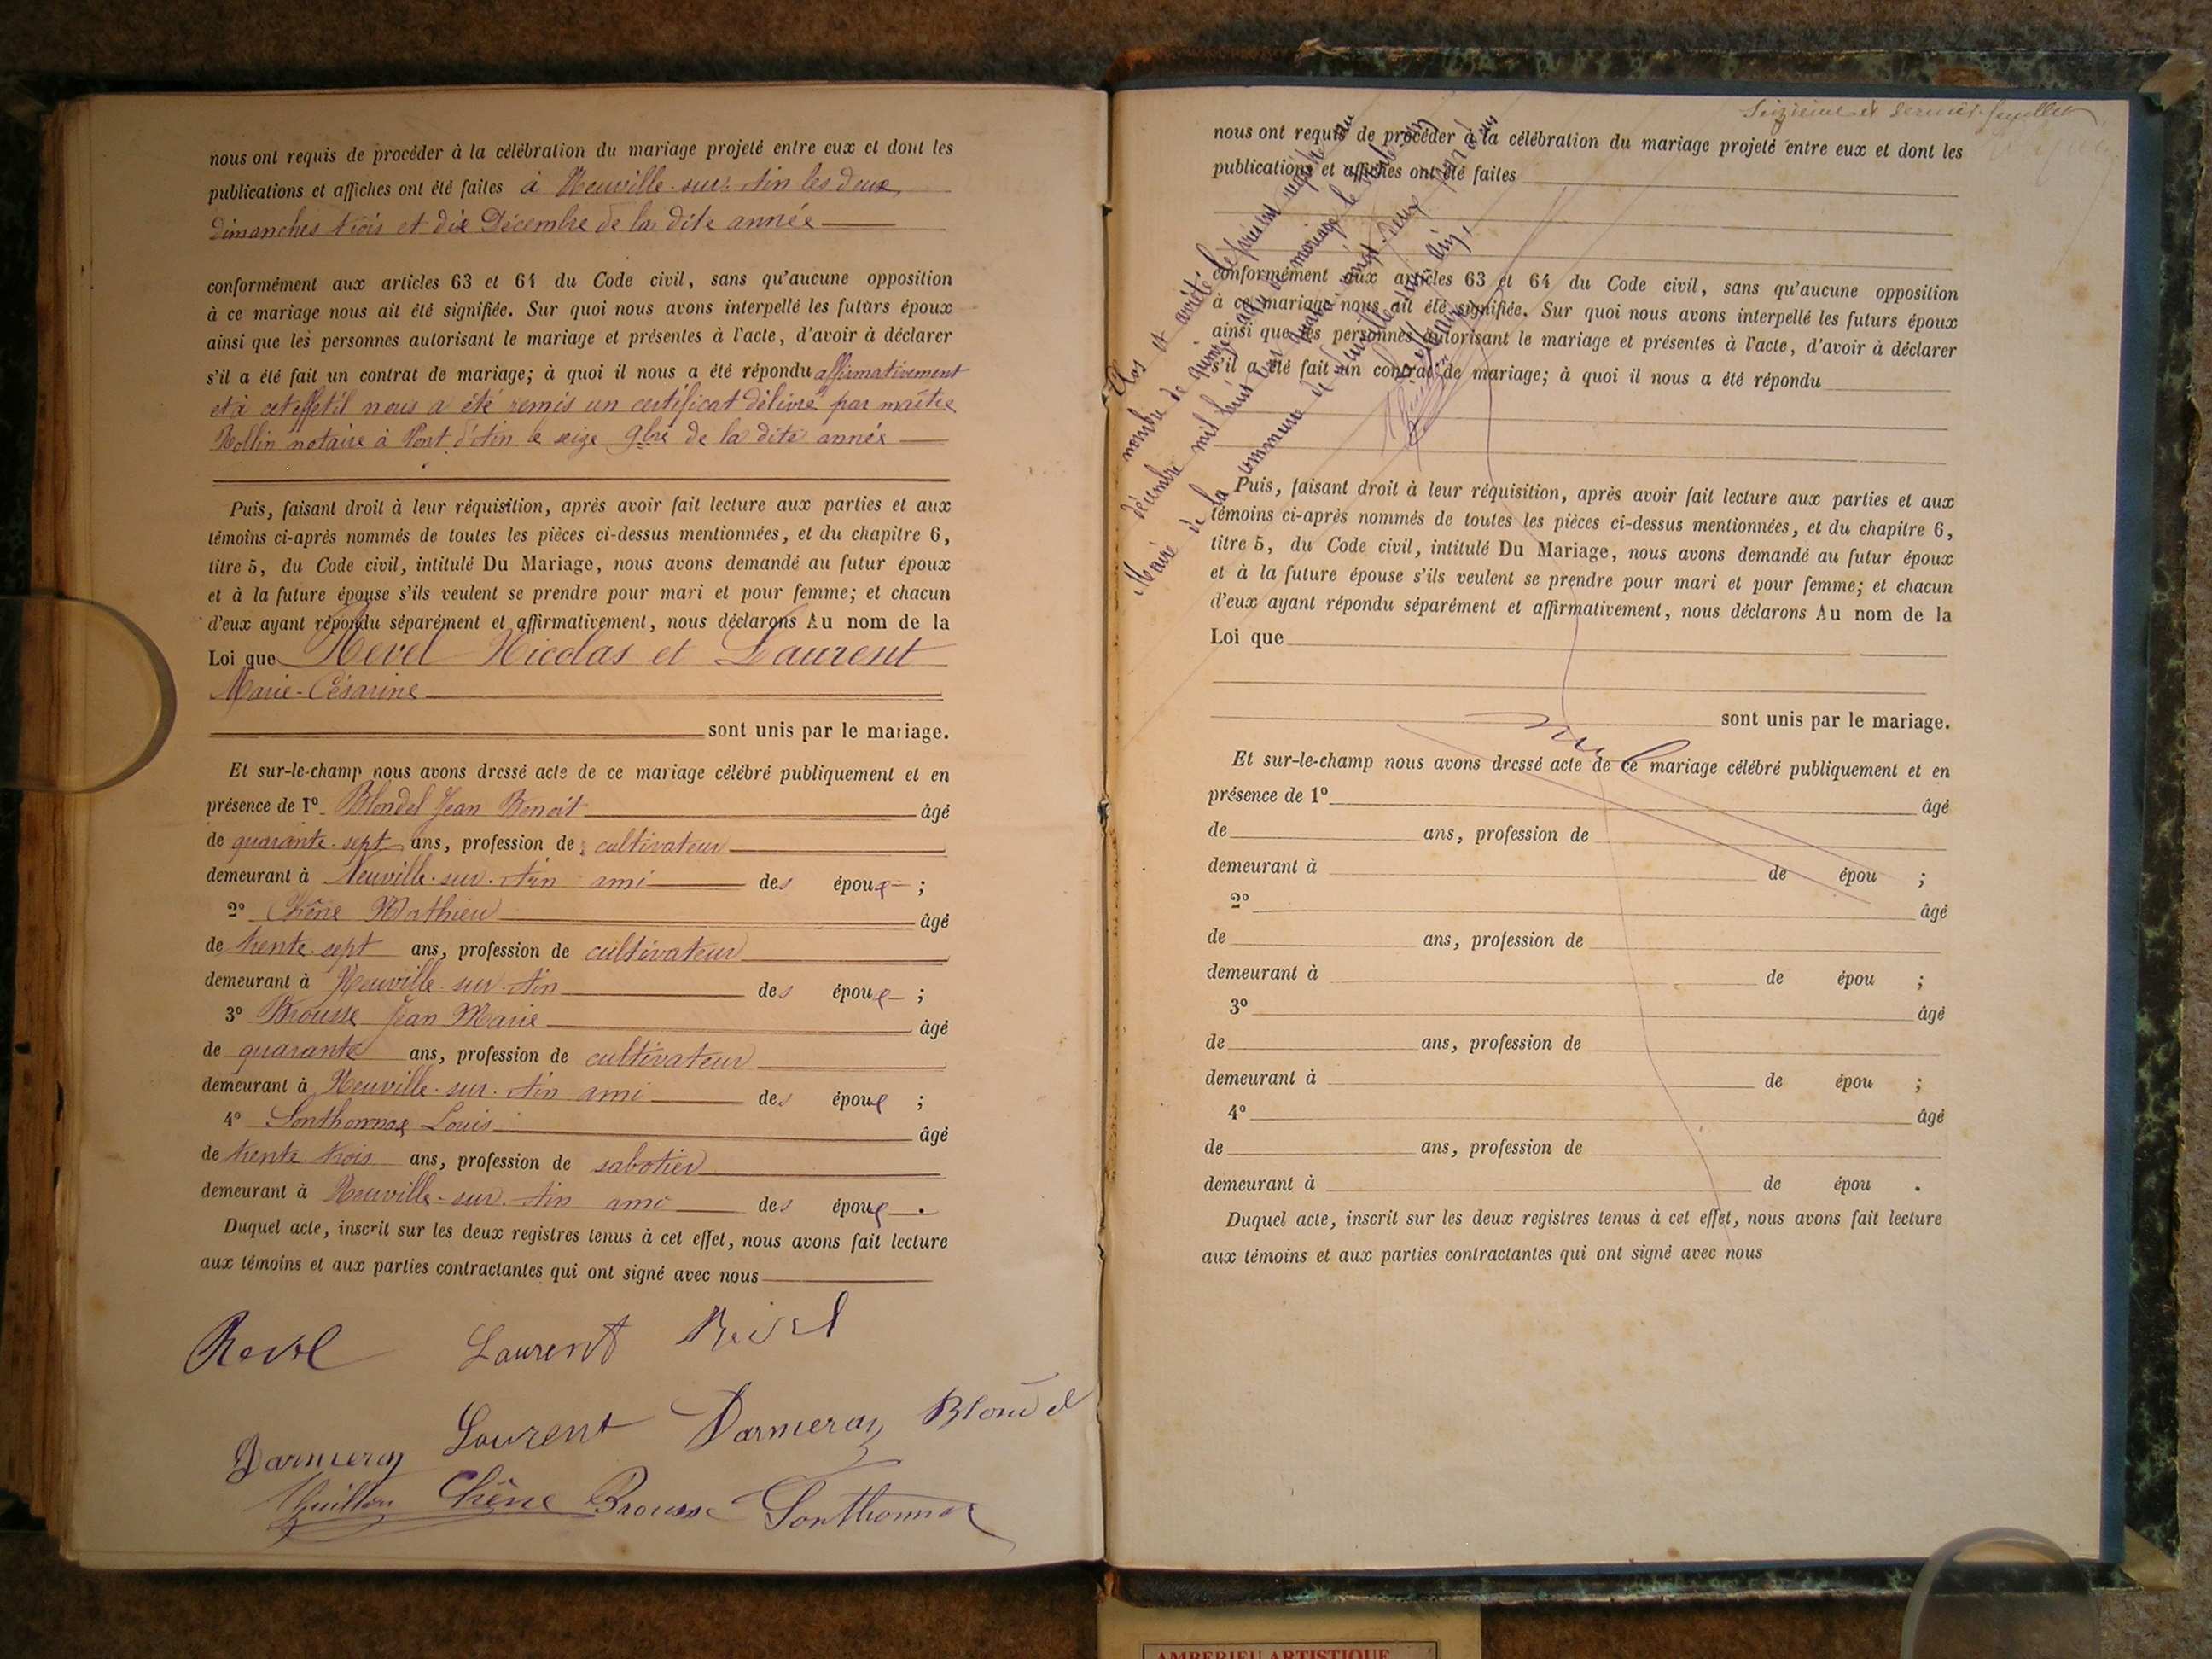 nous ont requis de procéder à la célébration du mariage projeté entre eux et dont les
publications et affiches ont été faites à Neuville-sur-Ain les deux
dimanches trois et dix Décembre de la dite année
conformément aux articles 63 et 64 du Code civil, sans qu'aucune opposition
à ce mariage nous ait été signifiée. Sur quoi nous avons interpellé les futurs époux
ainsi que les personnes autorisant le mariage et présentes à l'acte, d'avoir à déclarer
s'il a été fait un contrat de mariage; à quoi il nous a été répondu affirmativement
et à cet effet il nous a été remis un certificat délivré par maître
Rollin notaire à Pont d'Ain le seize 9bre de la dite année
Puis, faisant droit à leur réquisition, après avoir fait lecture aux parties et aux
témoins ci-après nommés de toutes les pièces ci-dessus mentionnées, et du chapitre 6,
titre 5, du Code civil, intitulé Du Mariage, nous avons demandé au futur époux
et à la future épouse s'ils veulent se prendre pour mari et pour femme; et chacun
d'eux ayant répondu séparément et affirmativement, nous déclarons Au nom de la
Loi que Revel Nicolas et Laurent
Marie-Césarine
sont unis par le mariage.
Et sur-le-champ nous avons dressé acte de ce mariage célébré publiquement et en
présence de 1º Blondel Jean Benoit âgé
de quarante-sept ans, profession de cultivateur
demeurant à Neuville-sur-Ain ami des époux ;
2º Chêne Mathieu âgé
de trente-sept ans, profession de cultivateur
demeurant à Neuville-sur-Ain des époux ;
3º Brousse Jean Marie âgé
de quarante ans, profession de cultivateur
demeurant à Neuville-sur-Ain ami des époux ;
4º Sonthonnax Louis âgé
de trente trois ans, profession de sabotier
demeurant à Neuville-sur-Ain ami des époux .
Duquel acte, inscrit sur les deux registres tenus à cet effet, nous avons fait lecture
aux témoins et aux parties contractantes qui ont signé avec nous
Revel Laurent Revel
Darmeray Laurent Darmeray Blondel
Thuillier Chêne Brousse Sonthonnax
Seizième et dernier feuillet
nous ont requis de procéder à la célébration du mariage projeté entre eux et dont les
publications et affiches ont été faites
conformément aux articles 63 et 64 du Code civil, sans qu'aucune opposition
à ce mariage nous ait été signifiée. Sur quoi nous avons interpellé les futurs époux
ainsi que les personnes autorisant le mariage et présentes à l'acte, d'avoir à déclarer
s'il a été fait un contrat de mariage; à quoi il nous a été répondu
Clos et arrêté le présent registre au
nombre de quinze actes de mariage le trente un
décembre mil huit cent quatre vingt deux par nous
Maire de la commune de Neuville-sur-Ain,
Le Maire
Puis, faisant droit à leur réquisition, après avoir fait lecture aux parties et aux
témoins ci-après nommés de toutes les pièces ci-dessus mentionnées, et du chapitre 6,
titre 5, du Code civil, intitulé Du Mariage, nous avons demandé au futur époux
et à la future épouse s'ils veulent se prendre pour mari et pour femme; et chacun
d'eux ayant répondu séparément et affirmativement, nous déclarons Au nom de la
Loi que
sont unis par le mariage.
nul
Et sur-le-champ nous avons dressé acte de ce mariage célébré publiquement et en
présence de 1º âgé
de ans, profession de
demeurant à de épou ;
2º âgé
de ans, profession de
demeurant à de épou ;
3º âgé
de ans, profession de
demeurant à de épou ;
4º âgé
de ans, profession de
demeurant à de épou .
Duquel acte, inscrit sur les deux registres tenus à cet effet, nous avons fait lecture
aux témoins et aux parties contractantes qui ont signé avec nous
AMBERIEU ARTISTIQUE